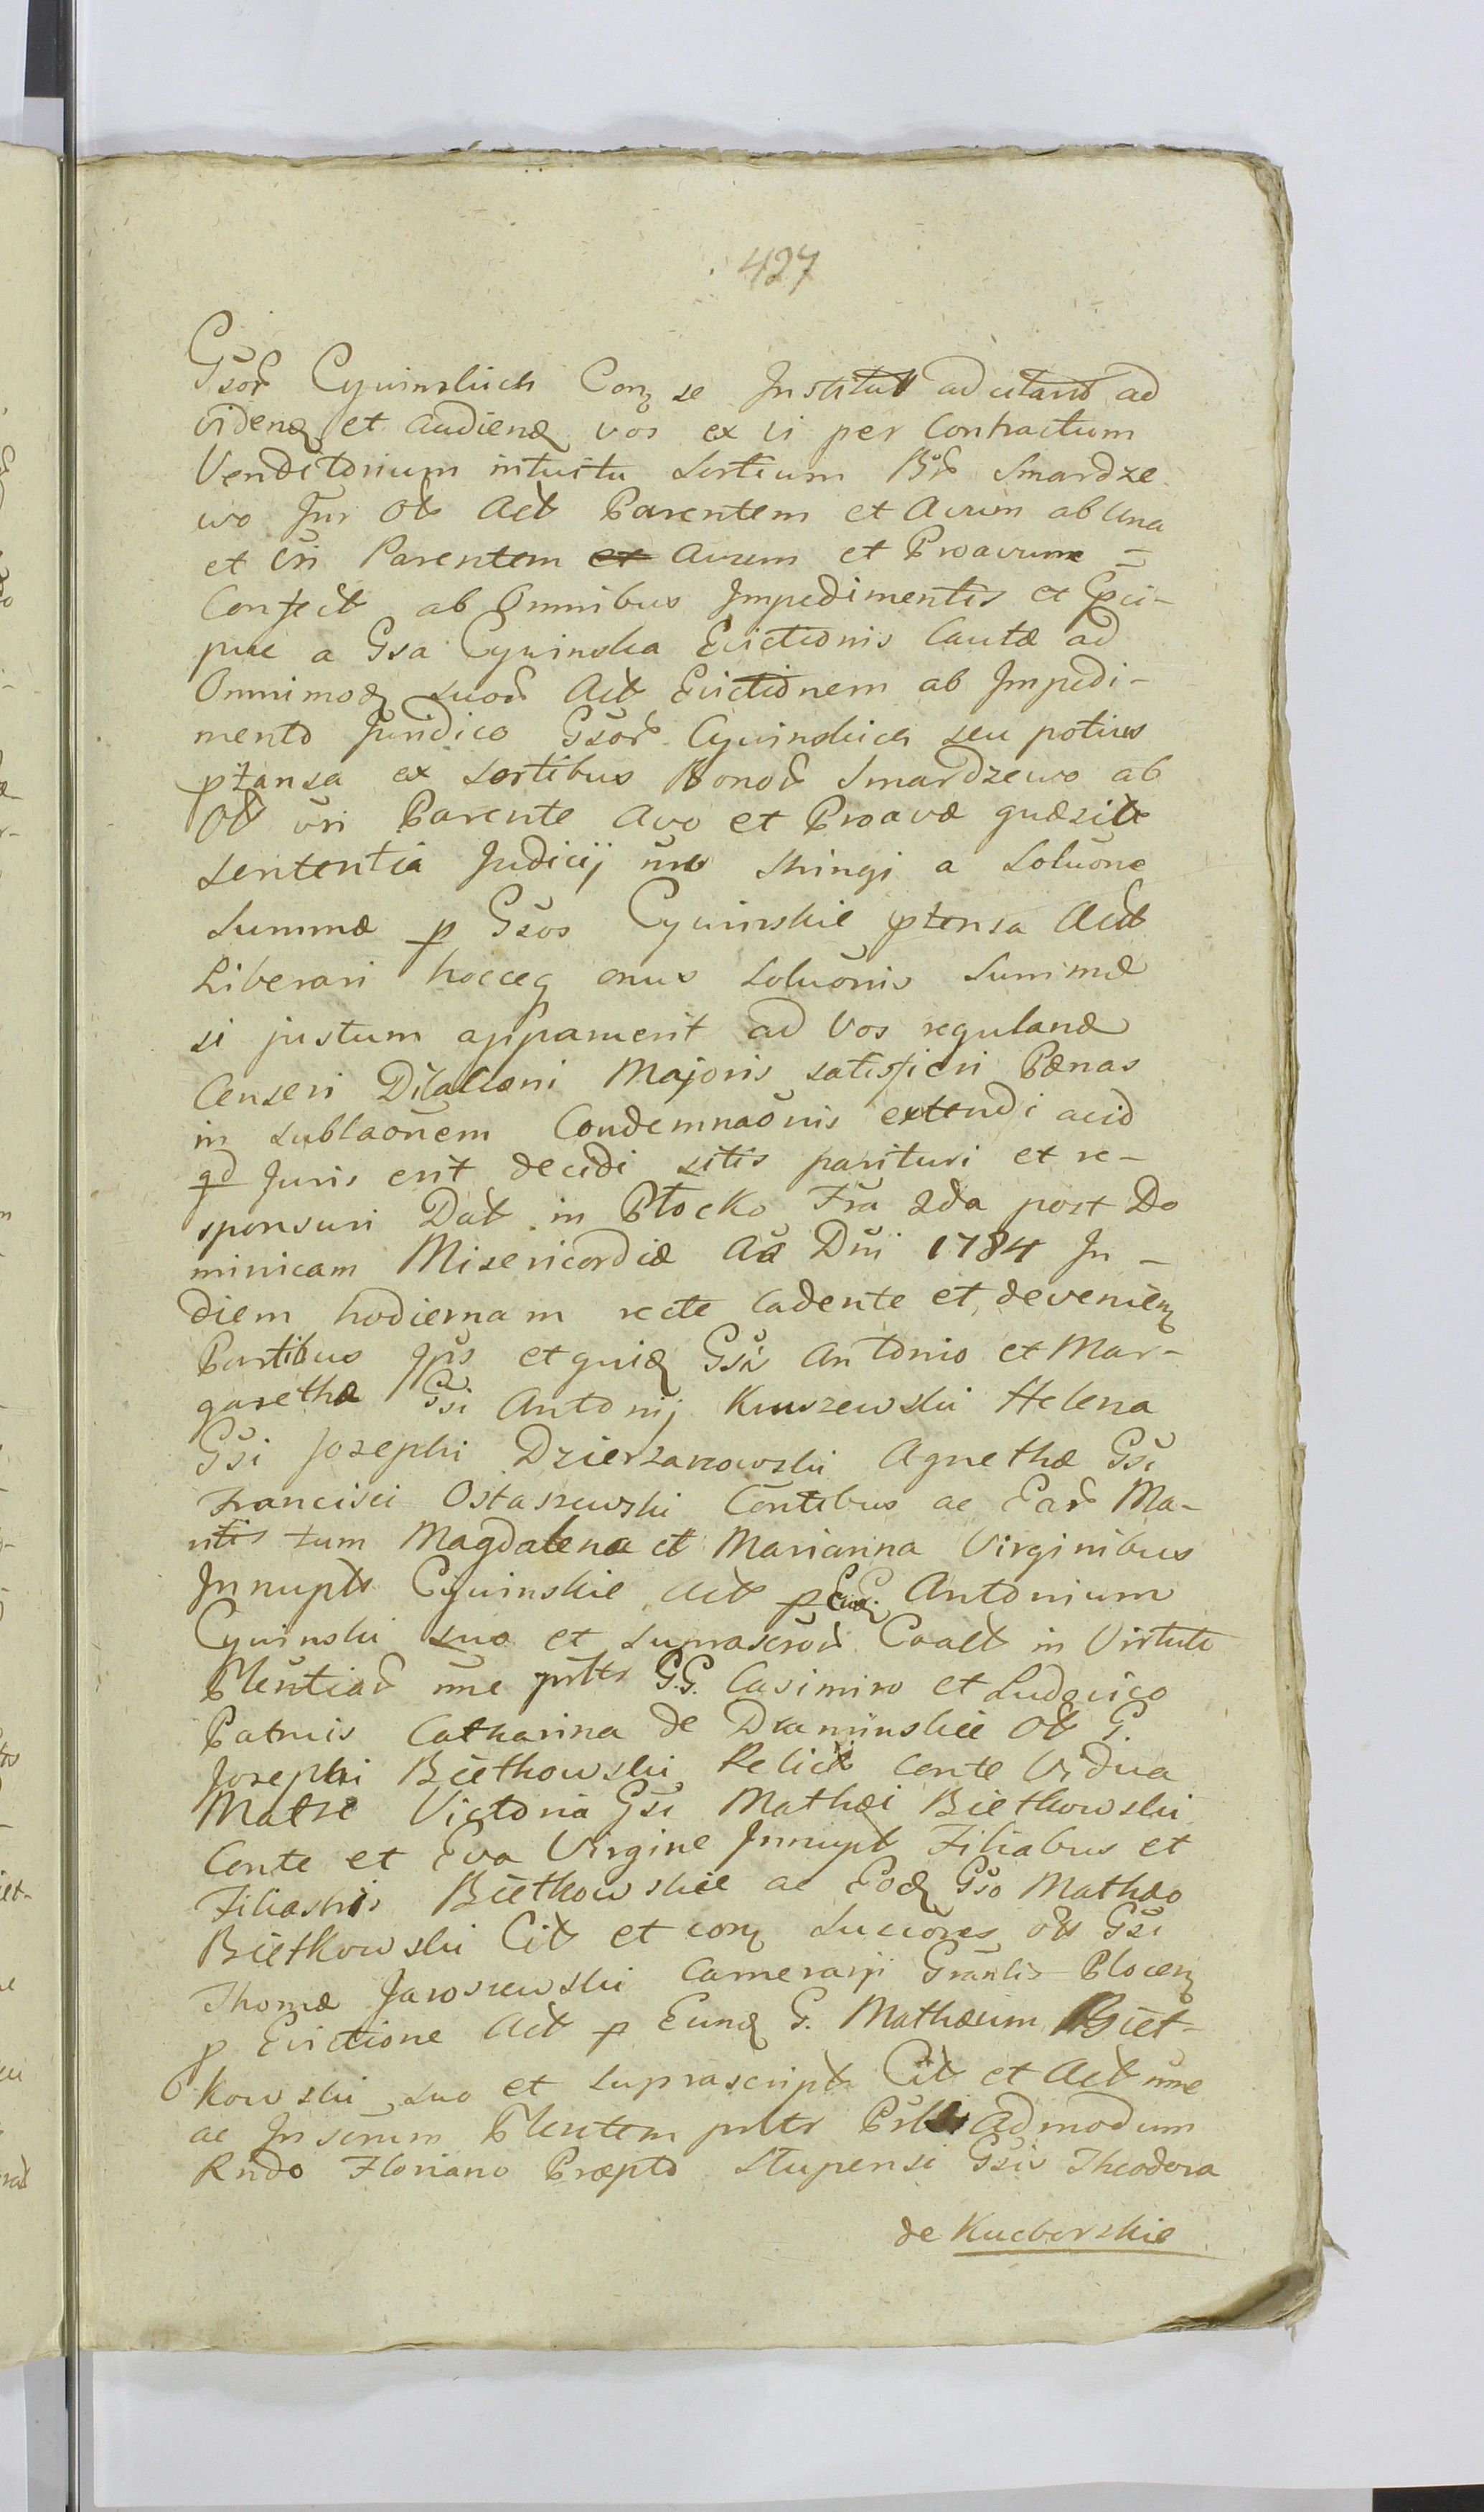 427
Gsor Cywinskich Conz se Institut ad citand ad
videnz et audienz vos ex vi per Contractum
Venditorium intuitu Sortium Br Smardze
wo Inr Ot Act Parentem et Avum ab una
et Vri Parentem et Avum et Proavum
Confect ab Omnibus Impedimentis et Pci-
pue a Gsa Cywinska Evictionis Cautæ ad
Omnimodz suor Act Evictionem ab Impedi-
mento Juridico Gsor Cywinskich seu potius
ptansa ex Sortibus Bonor Smardzewo ab
Ot vri Parente Avo et Proavæ quæsit
Sententia Judicij nro stringi a Soluone
Summæ p Gsos Cywinskie ptensa Act
Liberari hocceq onus Soluonis Summæ
si justum apparuerit ad Vos reguland
Censeri Dilaoni Majoris satisfieri Pænas
in sublaonem Condemnaonis extendi acid
qd Juris erit decidi sitis parituri et re-
sponsuri Dat in Płocko Fra 2da post Do
minicam Misericordiæ Aō Dni 1784 In
diem hodiernam recte cadente et devenienz
Partibus ipsis et quidz Gsis Antonio et Mar-
garetha Gsi Antonij Kruszewski Helena
Gsi Josephi Dzierzanowski Agnetha Gsi
Francisci Ostaszewski Contibus ac Ear Ma-
ritis tum Magdalena et Marianna Virginibus
Innupts Cywinskie Act p Eundz Antonium
Cywinski suo et suprascror Coact in Virtute
Plentiar nne pntr G.G. Casimiro et Ludovico
Patruis Catharina de Dramiinskie Ot G.
Josephi Bietkowski Relict Conte Vidua
Matre Victoria Gsi Mathæi Bietkowski
Conte et Eva Virgine Innupt Filiabus et
Filiastris Bietkowskie ac Eodz Gso Mathæo
Bietkowski Cit et conz Succores Ot Gsi
Thomæ Jaroszewski Camerarij Granlis Plocenz
p Evictione Act p Eundz G. Mathæum Biet-
kowski suo et suprascript Cit et Act nne
ac Inserum Plentem pntr Admodum
Rndo Floriano Præpto Stupensi Gsis Theodora
de Kucborskie